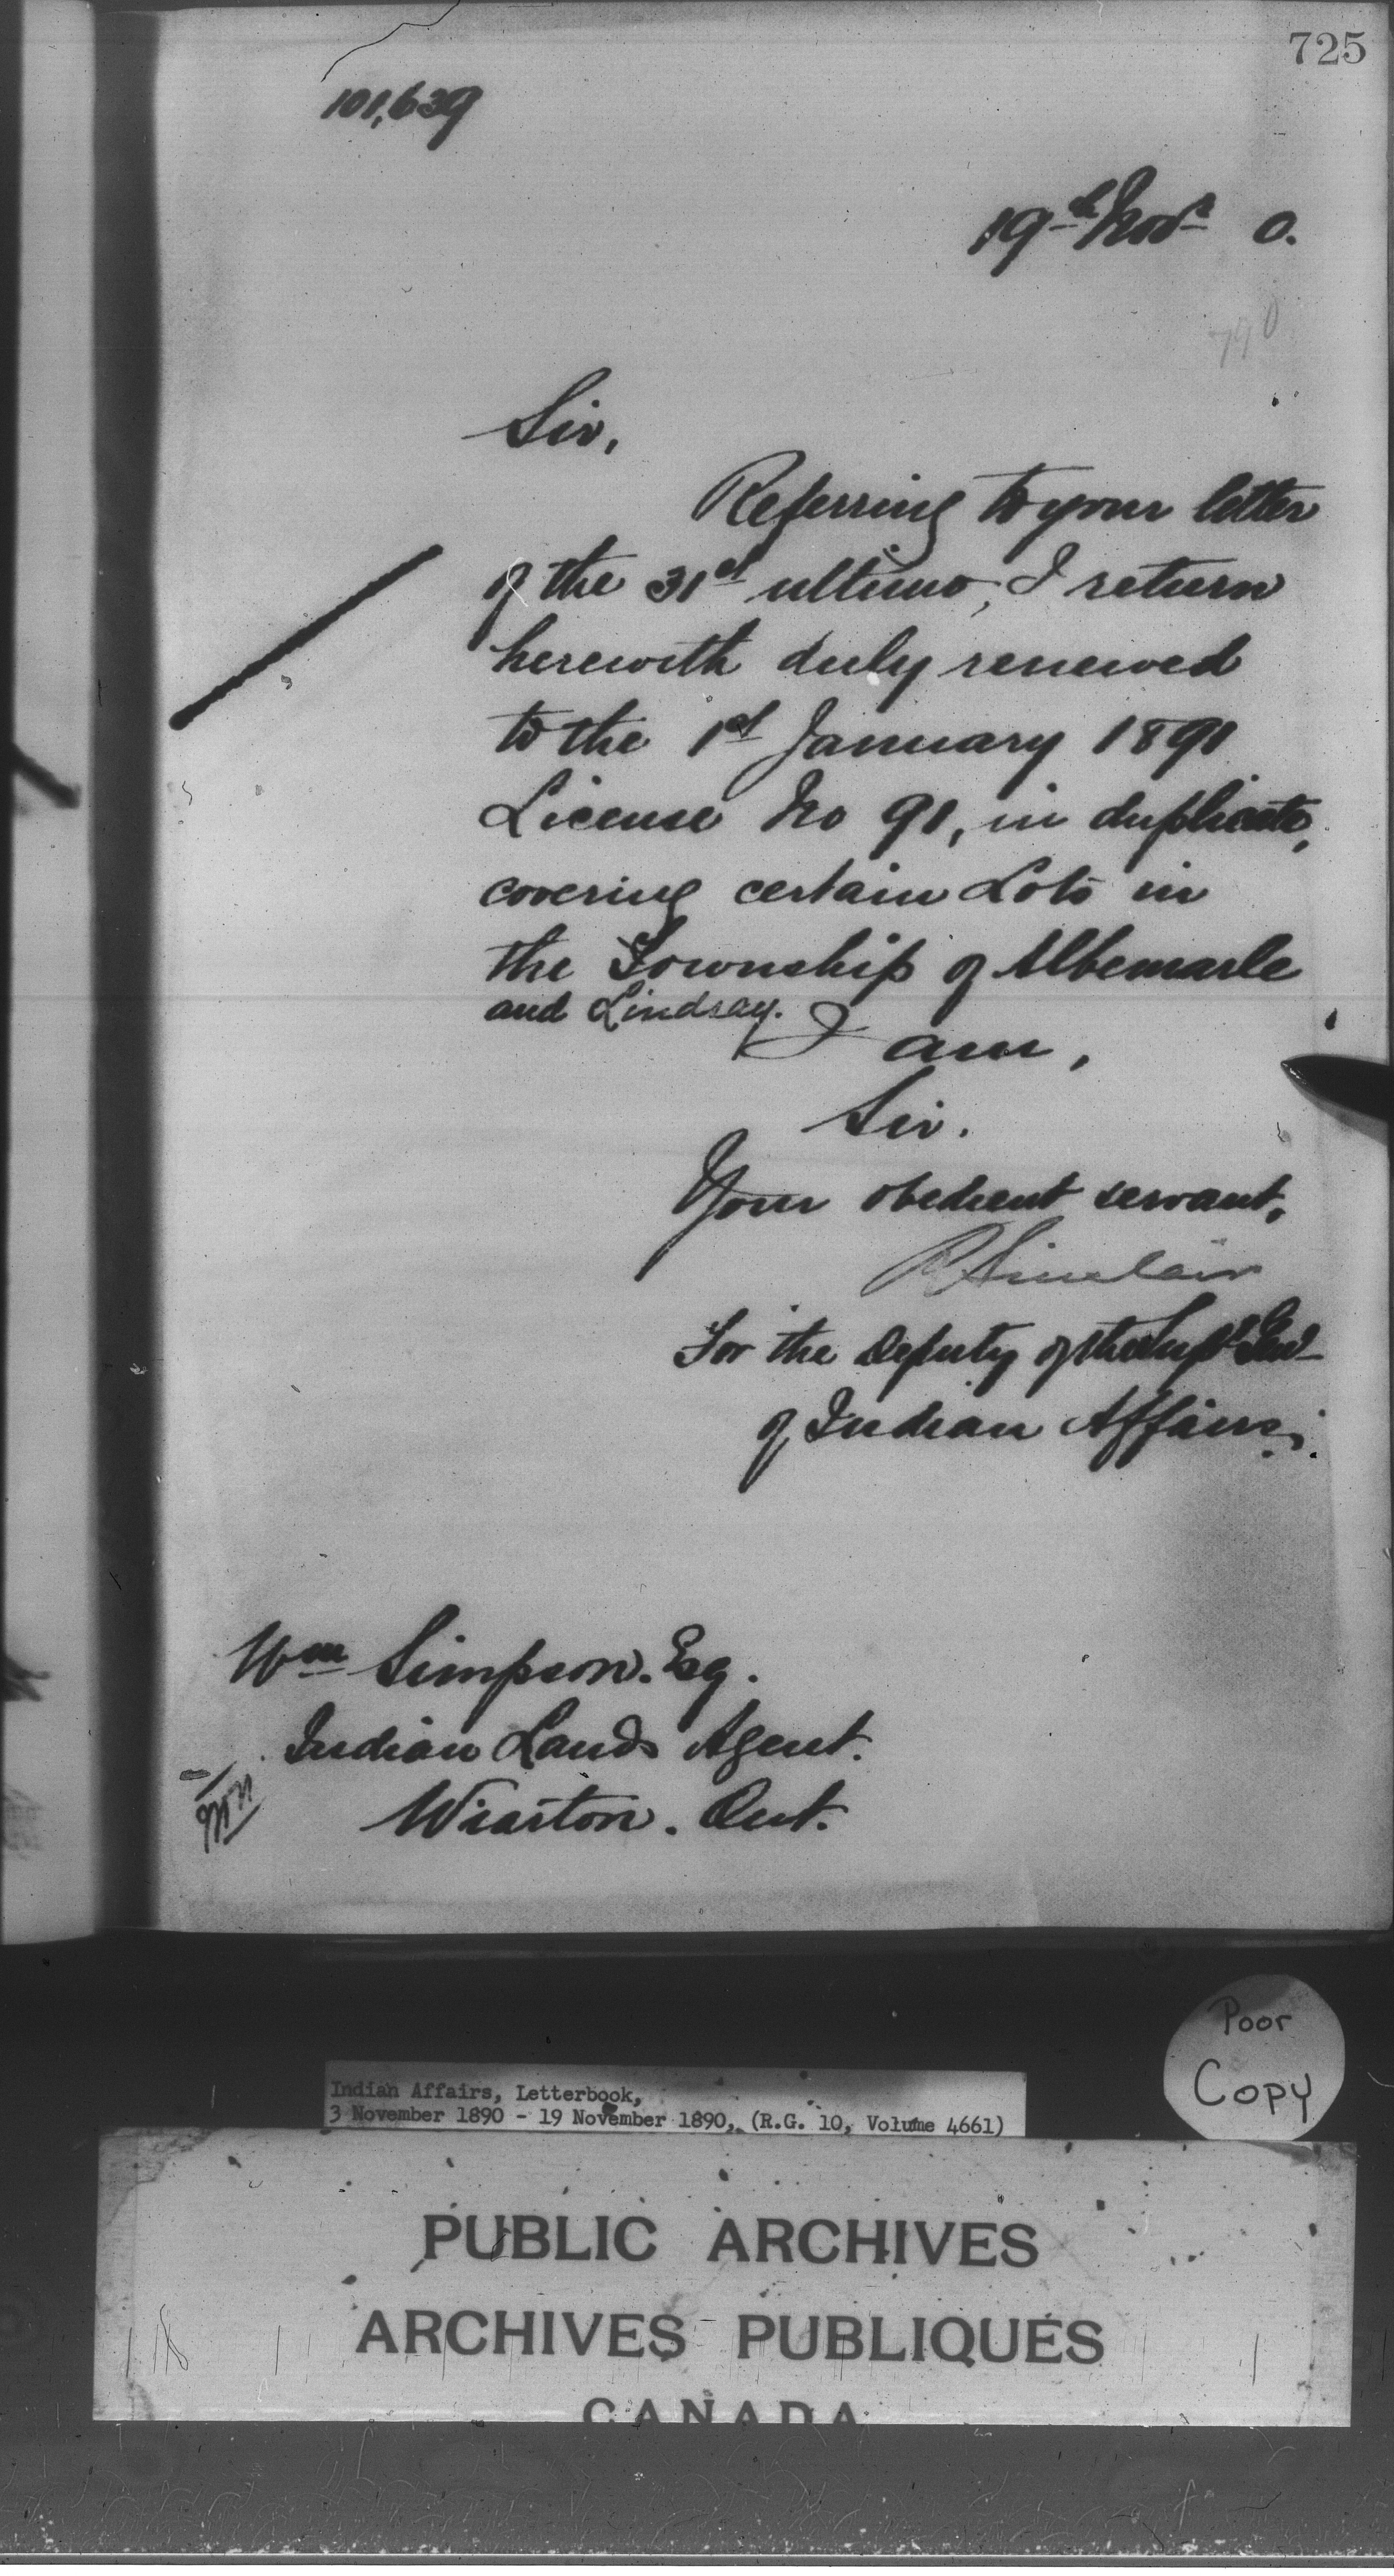 725
101,639
19th Novr 0.
790
Sir,
Referring to your letter
of the 31st ultimo, I return
herewith duly renewed
to the 1st January 1891
License No 91, in duplicate,
covering certain Lots in
the Township of Albemarle
and Lindsay.
I am,
Sir.
Your obedient servant,
R Sinclair
For the Deputy of the Supt Genl
of Indian Affairs.
Wm Simpson. Esq.
Indian Lands Agent.
Wiarton. Ont.
Poor
Copy
Indian Affairs, Letterbook,
3 November 1890 - 19 November 1890, (R.G. 10, Volume 4661)
PUBLIC ARCHIVES
ARCHIVES PUBLIQUES
CANADA